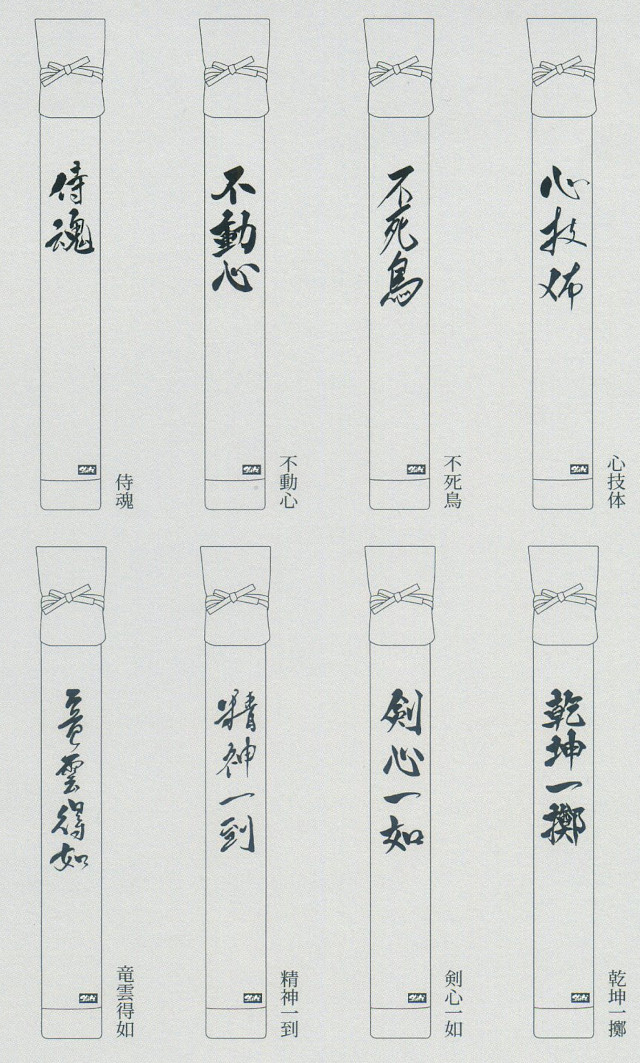 心技体
心技体
不死鳥
不死鳥
不動心
不動心
侍魂
侍魂
乾坤一擲
乾坤一擲
剣心一如
剣心一如
精神一到
精神一到
竜雲得如
竜雲得如